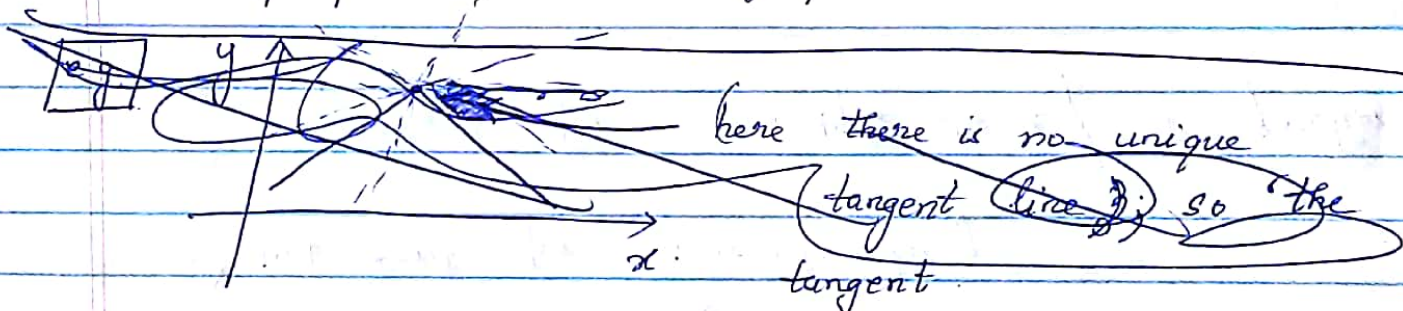 e.g. y
here there is no unique
tangent line; so the
x.
tangent